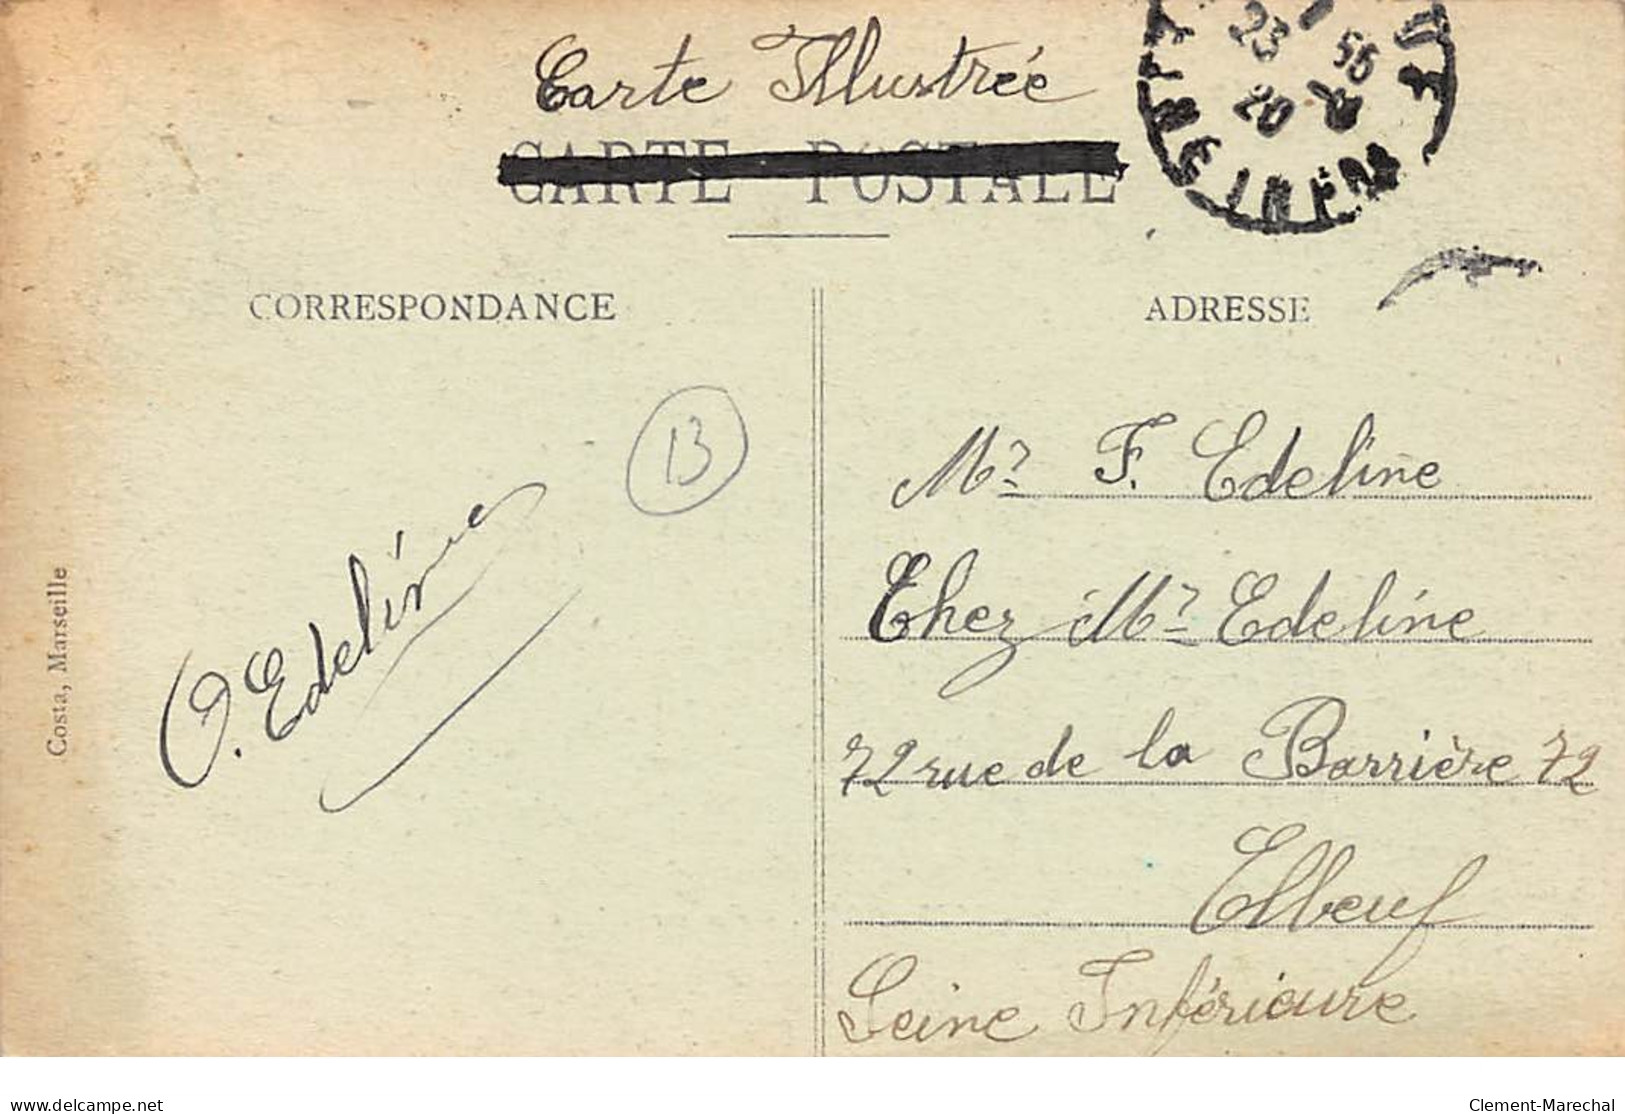 Carte Illustrée
CARTE POSTALE
23 55
20
SEINE INFRE
CORRESPONDANCE
ADRESSE
13
Mr F. Edeline
Chez Mr Edeline
72 rue de la Barrière 72
Elbeuf
Seine Inférieure
O. Edeline
Costa, Marseille
www.delcampe.net
Clement-Marechal